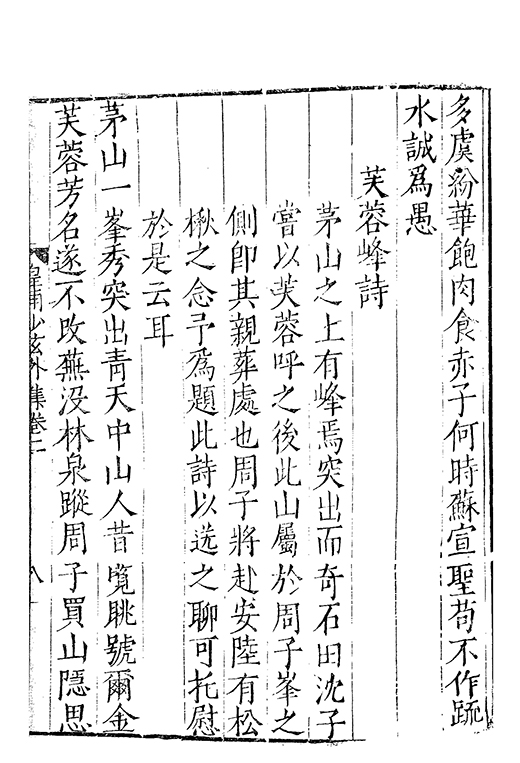 多虞紛華飽肉食赤子何時蘇宣聖苟不作䟽
水誠爲愚
芙蓉峰詩
茅山之上有峰焉突出而奇石田沈子
嘗以芙蓉呼之後此山屬於周子峯之
側卽其親葬處也周子將赴安陸有松
楸之念予爲題此詩以送之聊可托慰
於是云耳
茅山一峯秀突出青天中山人昔覽眺號爾金
芙蓉芳名遂不改蕪没林泉蹤周子買山隱思
皇甫少玄外集卷二
八